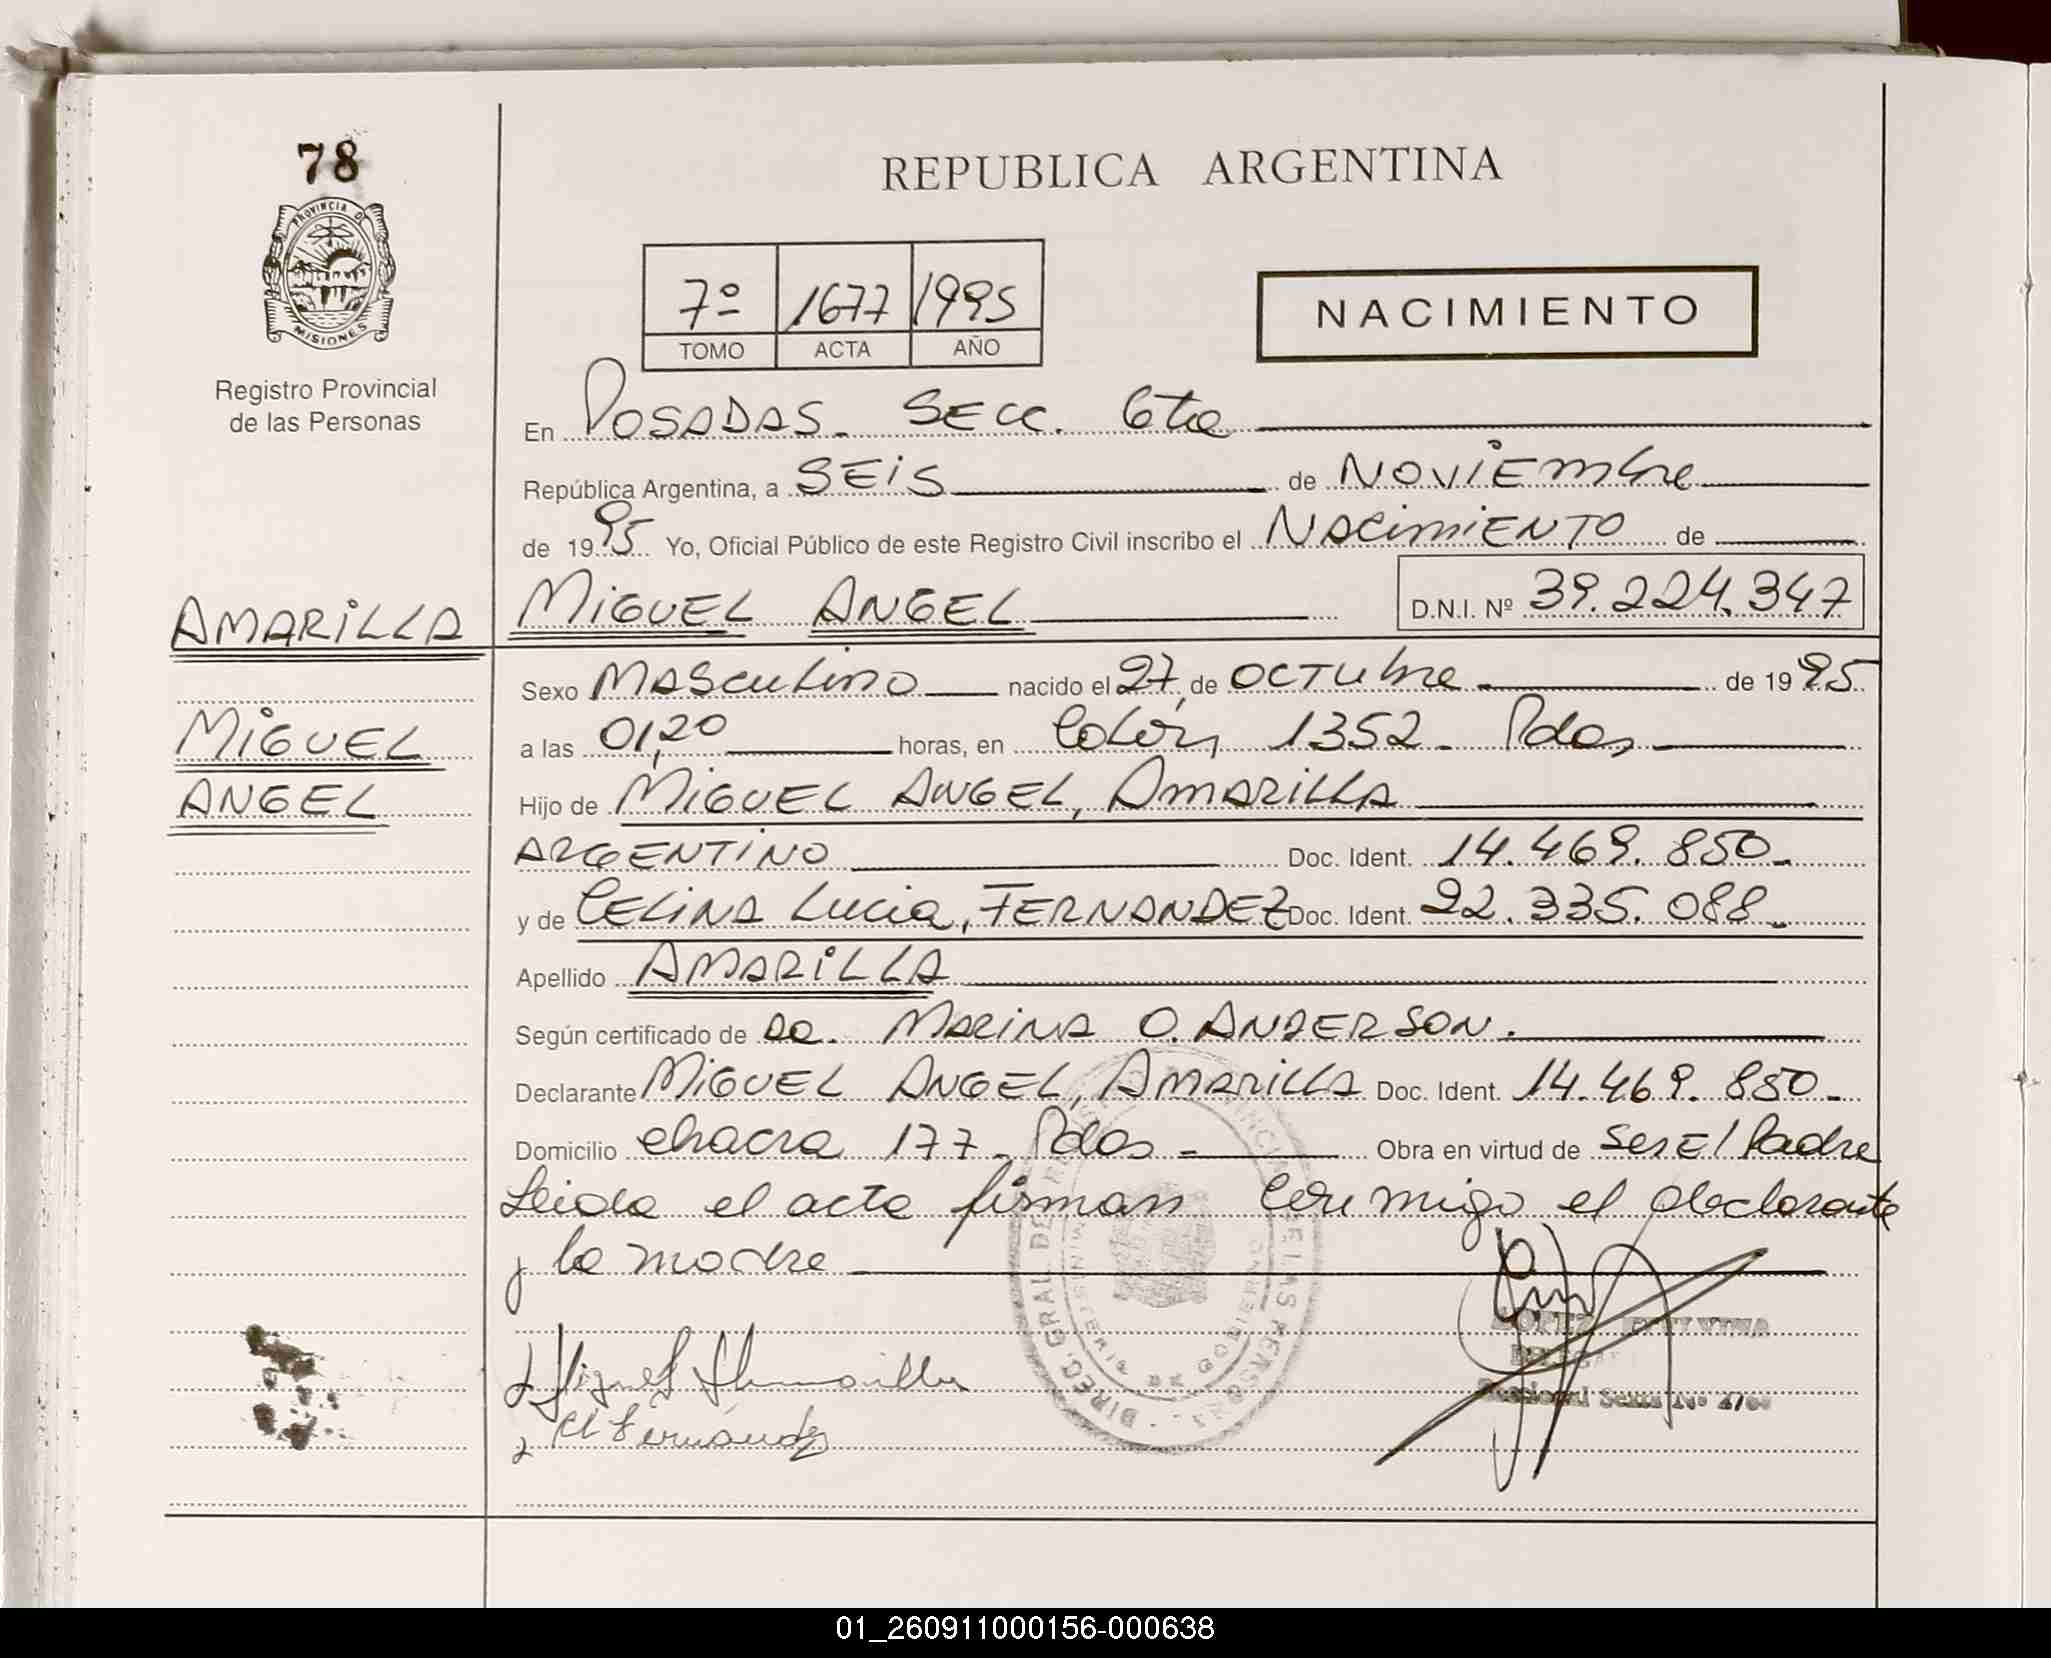 78
PROVINCIA DE
MISIONES
Registro Provincial
de las Personas
AMARILLA
MIGUEL
ANGEL
REPUBLICA ARGENTINA
7º 1677 1995
TOMO ACTA AÑO
NACIMIENTO
En POSADAS. SECC. 6ta
República Argentina, a SEIS de NOVIEMbre
de 1995 Yo, Oficial Público de este Registro Civil inscribo el NACimiENTO de
MIGUEL ANGEL D.N.I. Nº 39.224.347
Sexo MASCULINO nacido el 27 de OCTUbre de 1995
a las 01,20 horas, en Colón 1352. Pdas
Hijo de MIGUEL ANGEL, AMARILLA
ARGENTINO Doc. Ident. 14.469.850.
y de CELINA Lucia, FERNANDEZ Doc. Ident. 22.335.088.
Apellido AMARILLA
Según certificado de Da. MARINA O. ANDERSON.
Declarante MIGUEL ANGEL, AMARILLA Doc. Ident. 14.469.850.
Domicilio chacra 177. Pdas. Obra en virtud de ser El Padre
Leida el acta firman conmigo el declarante
y la madre
Miguel A Amarilla
CL Fernández
DIREC. GRAL. DEL REGISTRO PROVINCIAL DE LAS PERSONAS
MINISTERIO DE GOBIERNO
Seccional Sexta Nº
01_260911000156-000638